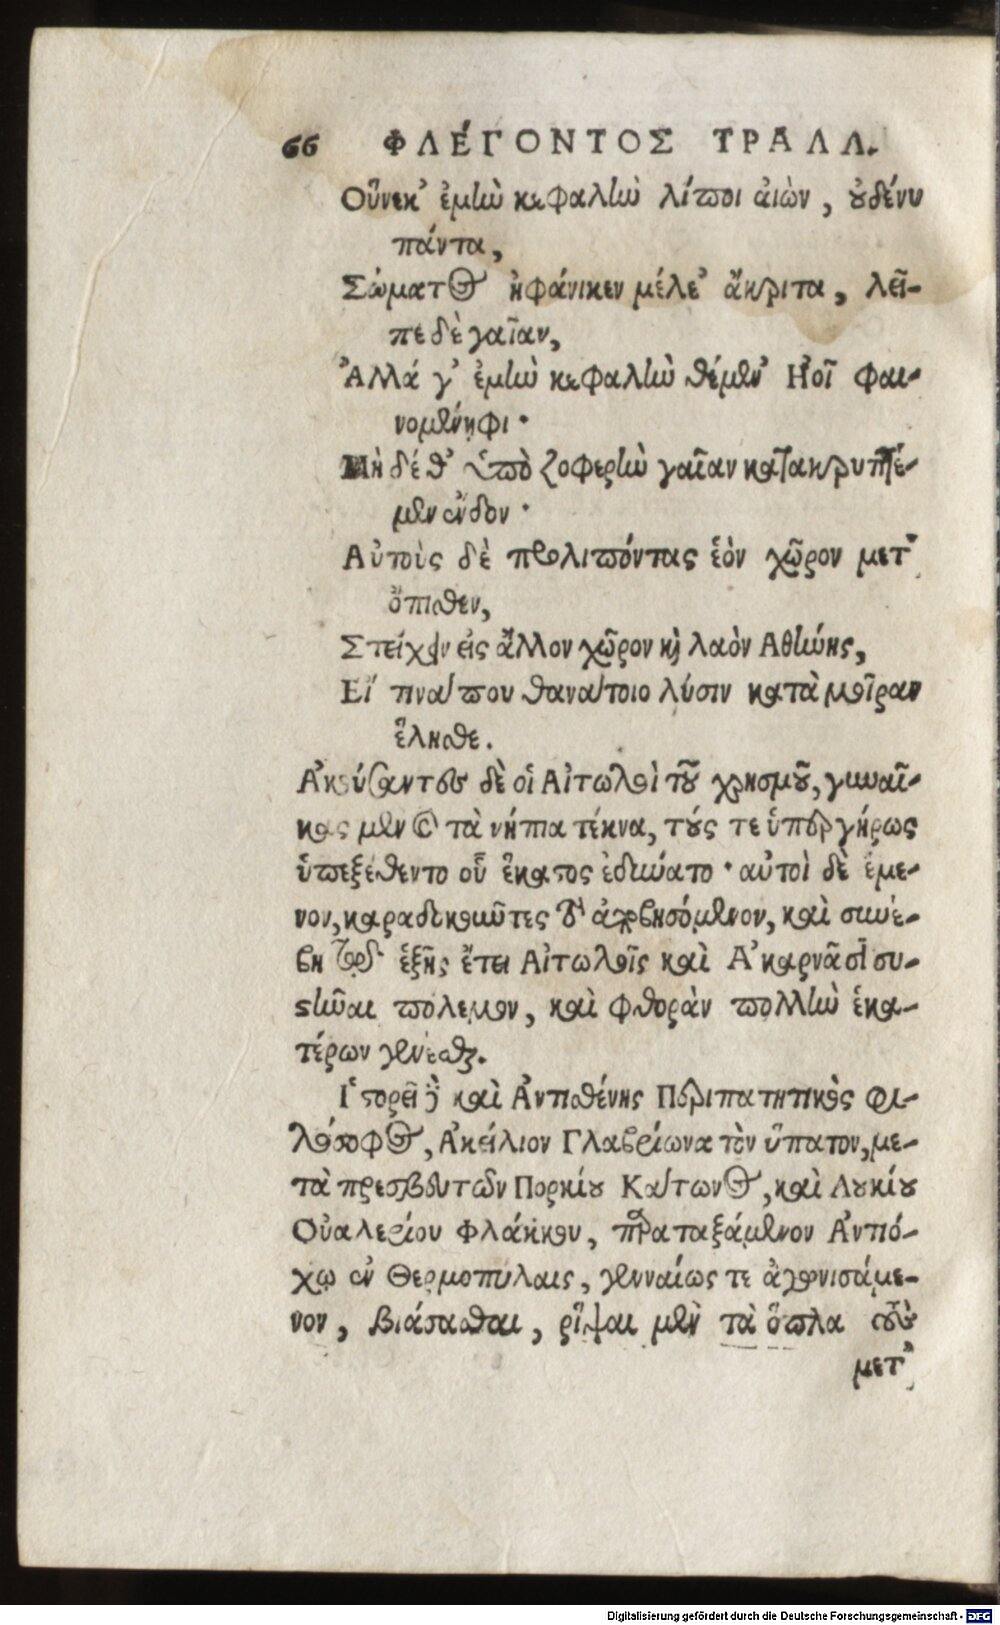 66 ΦΛΈΓΟΝΤΟΣ ΤΡΑΛΛ.
Οὕνεκ' ἐμὴν κεφαλὴν λίποι ἀιὼν, ȣ̓δένυ
πάντα,
Σώματος ἠφάνικεν μέλε' ἄκριτα, λεῖ-
πε δὲ γαῖαν,
Ἀλλά γ' ἐμὴν κεφαλὴν θέμεν' Ηοῖ φαι-
νομένηφι·
Μὴ δέ θ' ὑπὸ ζοφερὴν γαῖαν κατακρυπτέ-
μεν ἔνδον·
Αὐτοὺς δὲ προλιπόντας ἑὸν χῶρον μετ'
ὄπισθεν,
Στείχειν εἰς ἄλλον χῶρον καὶ λαὸν Αθήνης,
Εἴ τινα που θανάτοιο λύσιν κατὰ μοῖραν
ἕλησθε.
Ἀκούσαντες δὲ οἱ Αἰτωλοὶ τοῦ χρησμοῦ, γυναῖ-
κας μὲν καὶ τὰ νήπια τέκνα, τούς τε ὑπεργήρως
ὑπεξέθεντο οὗ ἕκαστος ἐδύνατο· αὐτοὶ δὲ ἔμε-
νον, καραδοκοῦντες τὸ ἀποβησόμενον, καὶ συνέ-
βη τῷ ἑξῆς ἔτει Αἰτωλοῖς καὶ Ἀκαρνᾶσι συ-
στῆναι πόλεμον, καὶ φθορὰν πολλὴν ἑκα-
τέρων γενέσθαι.
Ἱστορεῖ δὲ καὶ Ἀντισθένης Περιπατητικὸς φι-
λόσοφος, Ἀκείλιον Γλαβρίωνα τὸν ὕπατον, με-
τὰ πρεσβευτῶν Πορκίȣ Κάτωνος, καὶ Λȣκίȣ
Οὐαλερίου Φλάκκου, παραταξάμενον Ἀντιό-
χῳ ἐν Θερμοπύλαις, γενναίως τε ἀγωνισάμε-
νον, βιάσασθαι, ῥῖψαι μὲν τὰ ὅπλα σὺν
μετ'
Digitalisierung gefördert durch die Deutsche Forschungsgemeinschaft - DFG